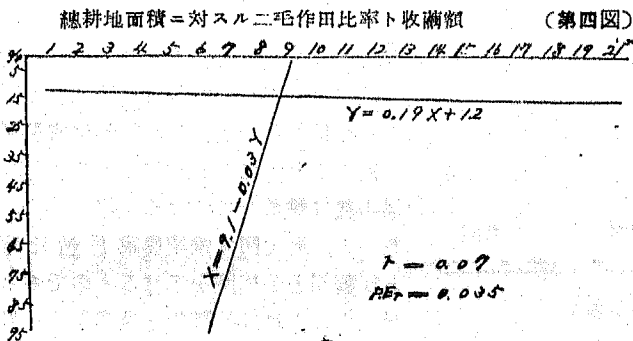 總耕地面積ニ対スル二毛作田比率ト收繭額 (第四図)
% 1 2 3 4 5 6 7 8 9 10 11 12 13 14 15 16 17 18 19 21
5
15
25
35
45
55
65
75
85
95
Y=0.19X+12
X=9.1-0.03Y
r=0.07
P.Er=0.035